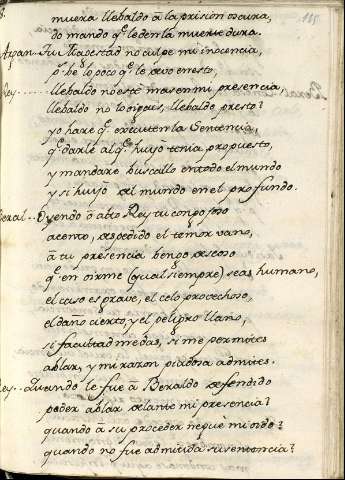 165
muera llebaldo a la prision oscura,
do mando q̃ le den la muerte dura.
Arpan... Tu Magestad no culpe mi inocencia,
q̃ be lo poco q̃ le avo en esto,
Rey...... llebaldo no esté mas en mi presencia
llebaldo no lo oigais, llebaldo presto?
yo hare q̃ executen la Sentencia,
q̃ darle al q̃ huyo tenia propuesto,
y mandare buscallo en todo el mundo
y si huyó del mundo en el profundo.
Beral.. Oyendo o alto Rey tu congojoso
acento, despedido el temor vano,
a tu presencia bengo deseoso
q̃ en oirme (qual siempre) seas humano,
el caso es grave, el celo provechoso,
el daño cierto, y el peligro llano,
si facultad me das, si me permites
ablar, y mi razon piadosa admites.
Rey.. Quando le fue a Beraldo defendido
poder ablar delante mi presencia?
quando a su proceder negue mi oido?
quando no fue admitida su sentencia?